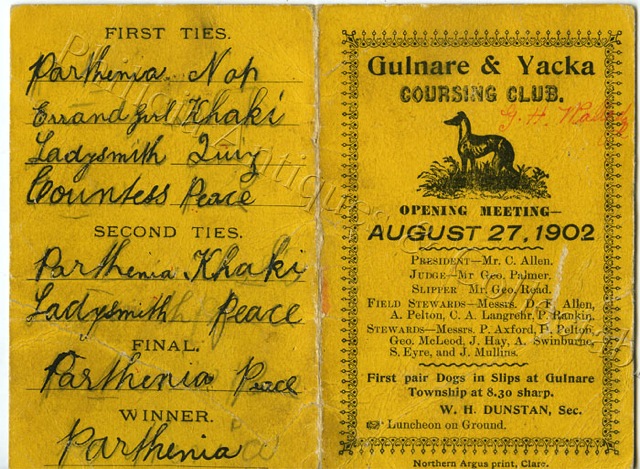 FIRST TIES.
Parthenia Nap
Errand Girl Khaki
Ladysmith Quiz
Countess Peace
SECOND TIES.
Parthenia Khaki
Ladysmith Peace
FINAL.
Parthenia Peace
WINNER.
Parthenia
Gulnare & Yacka
COURSING CLUB.
G. H.
OPENING MEETING—
AUGUST 27, 1902
PRESIDENT—Mr. C. Allen.
JUDGE—Mr Geo. Palmer.
SLIPPER—Mr. Geo. Read.
FIELD STEWARDS—Messrs. D. F. Allen,
A. Pelton, C. A. Langrehr, P. Rankin.
STEWARDS—Messrs. P. Axford, H. Pelton,
Geo. McLeod, J. Hay, A. Swinburne,
S. Eyre, and J. Mullins.
First pair Dogs in Slips at Gulnare
Township at 8.30 sharp.
W. H. DUNSTAN, Sec.
Luncheon on Ground.
Northern Argus print, Clare.
Philicia Antiques